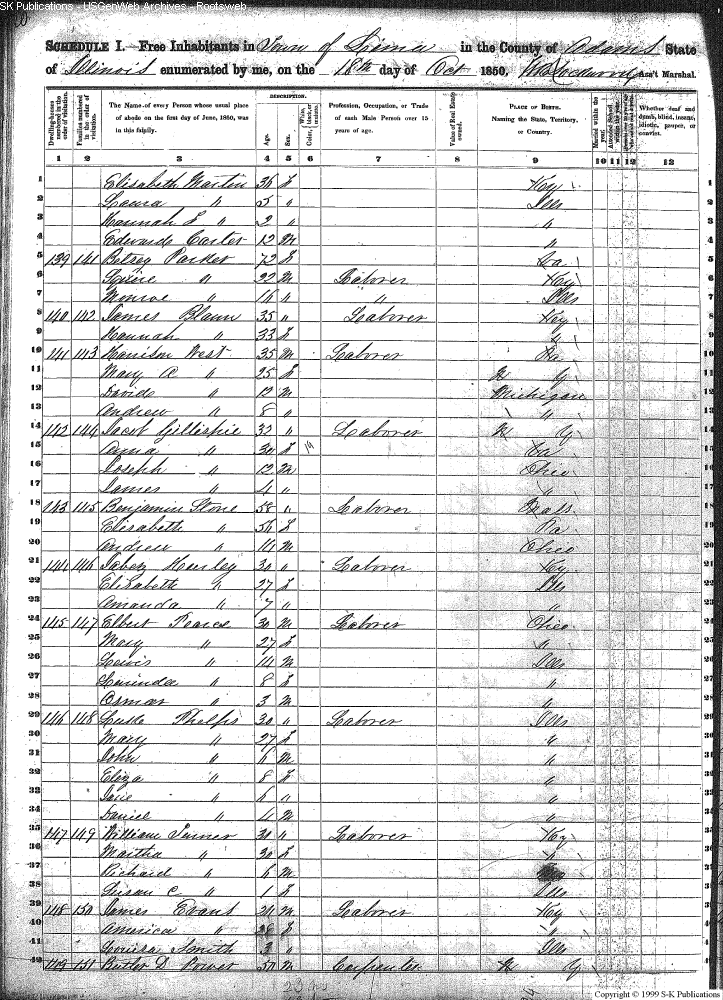 SK Publications - USGenWeb Archives - Rootsweb
SCHEDULE I.—Free Inhabitants in Town of Lima in the County of Adams State
of Illinois enumerated by me, on the 18th day of Oct 1850. Ass't Marshal.
Dwelling-houses numbered in the order of visitation.
Families numbered in the order of visitation.
The Name of every Person whose usual place of abode on the first day of June, 1850, was in this family.
DESCRIPTION.
Age.
Sex.
Color, White, black, or mulatto.
Profession, Occupation, or Trade of each Male Person over 15 years of age.
Value of Real Estate owned.
PLACE OF BIRTH. Naming the State, Territory, or Country.
Married within the year.
Attended School within the year.
Whether deaf and dumb, blind, insane, idiotic, pauper, or convict.
1 2 3 4 5 6 7 8 9 10 11 12 12
1 Elisabeth Martin 36 f Key 1
2 Laura " 5 " Ills 2
3 Hannah J " 2 " " 3
4 Edward Carter 12 M " 4
5 139 141 Betsey Parker 72 f 5
6 Squire " 22 M Laborer Key 6
7 Monroe " 16 " " Ills 7
8 140 142 James 35 " Laborer Key 8
9 Hannah " 33 f " 9
10 141 143 Harrison West 35 M Laborer 10
11 Mary A " 25 f N Y 11
12 David " 12 M Michigan 12
13 Andrew " 8 " " 13
14 142 144 Jacob Gillespie 33 " Laborer N Y 14
15 " 30 f 15
16 Joseph " 12 M Ohio 16
17 James " 4 " " 17
18 143 145 Benjamin Stone 58 " Laborer Mass 18
19 Elisabeth " 56 f Pa 19
20 Andrew " 14 M Ohio 20
21 144 146 Jabez Hurley 30 " Laborer Key 21
22 Elisabeth " 27 f Ills 22
23 Amanda " 7 " " 23
24 145 147 Elbert Pearce 30 M Laborer Ohio 24
25 Mary " 27 f " 25
26 Lewis " 14 M Ills 26
27 Lurinda " 8 f " 27
28 Osmar " 3 M " 28
29 146 148 Phelps 30 " Laborer Ills 29
30 Mary " 27 f " 30
31 John " M " 31
32 Eliza " 8 f " 32
33 " 6 " " 33
34 Daniel " 4 M " 34
35 147 149 William Turner 30 " Laborer Key 35
36 Martha " 30 f " 36
37 Richard " 6 M 37
38 Susan C " 1 f Ills 38
39 148 150 James Evans 24 M Laborer Key 39
40 America " 28 f " 40
41 Louisa Smith 3 " Ills 41
42 149 151 Butler D Power 50 M Carpenter N Y 42
Copyright © 1999 S-K Publications